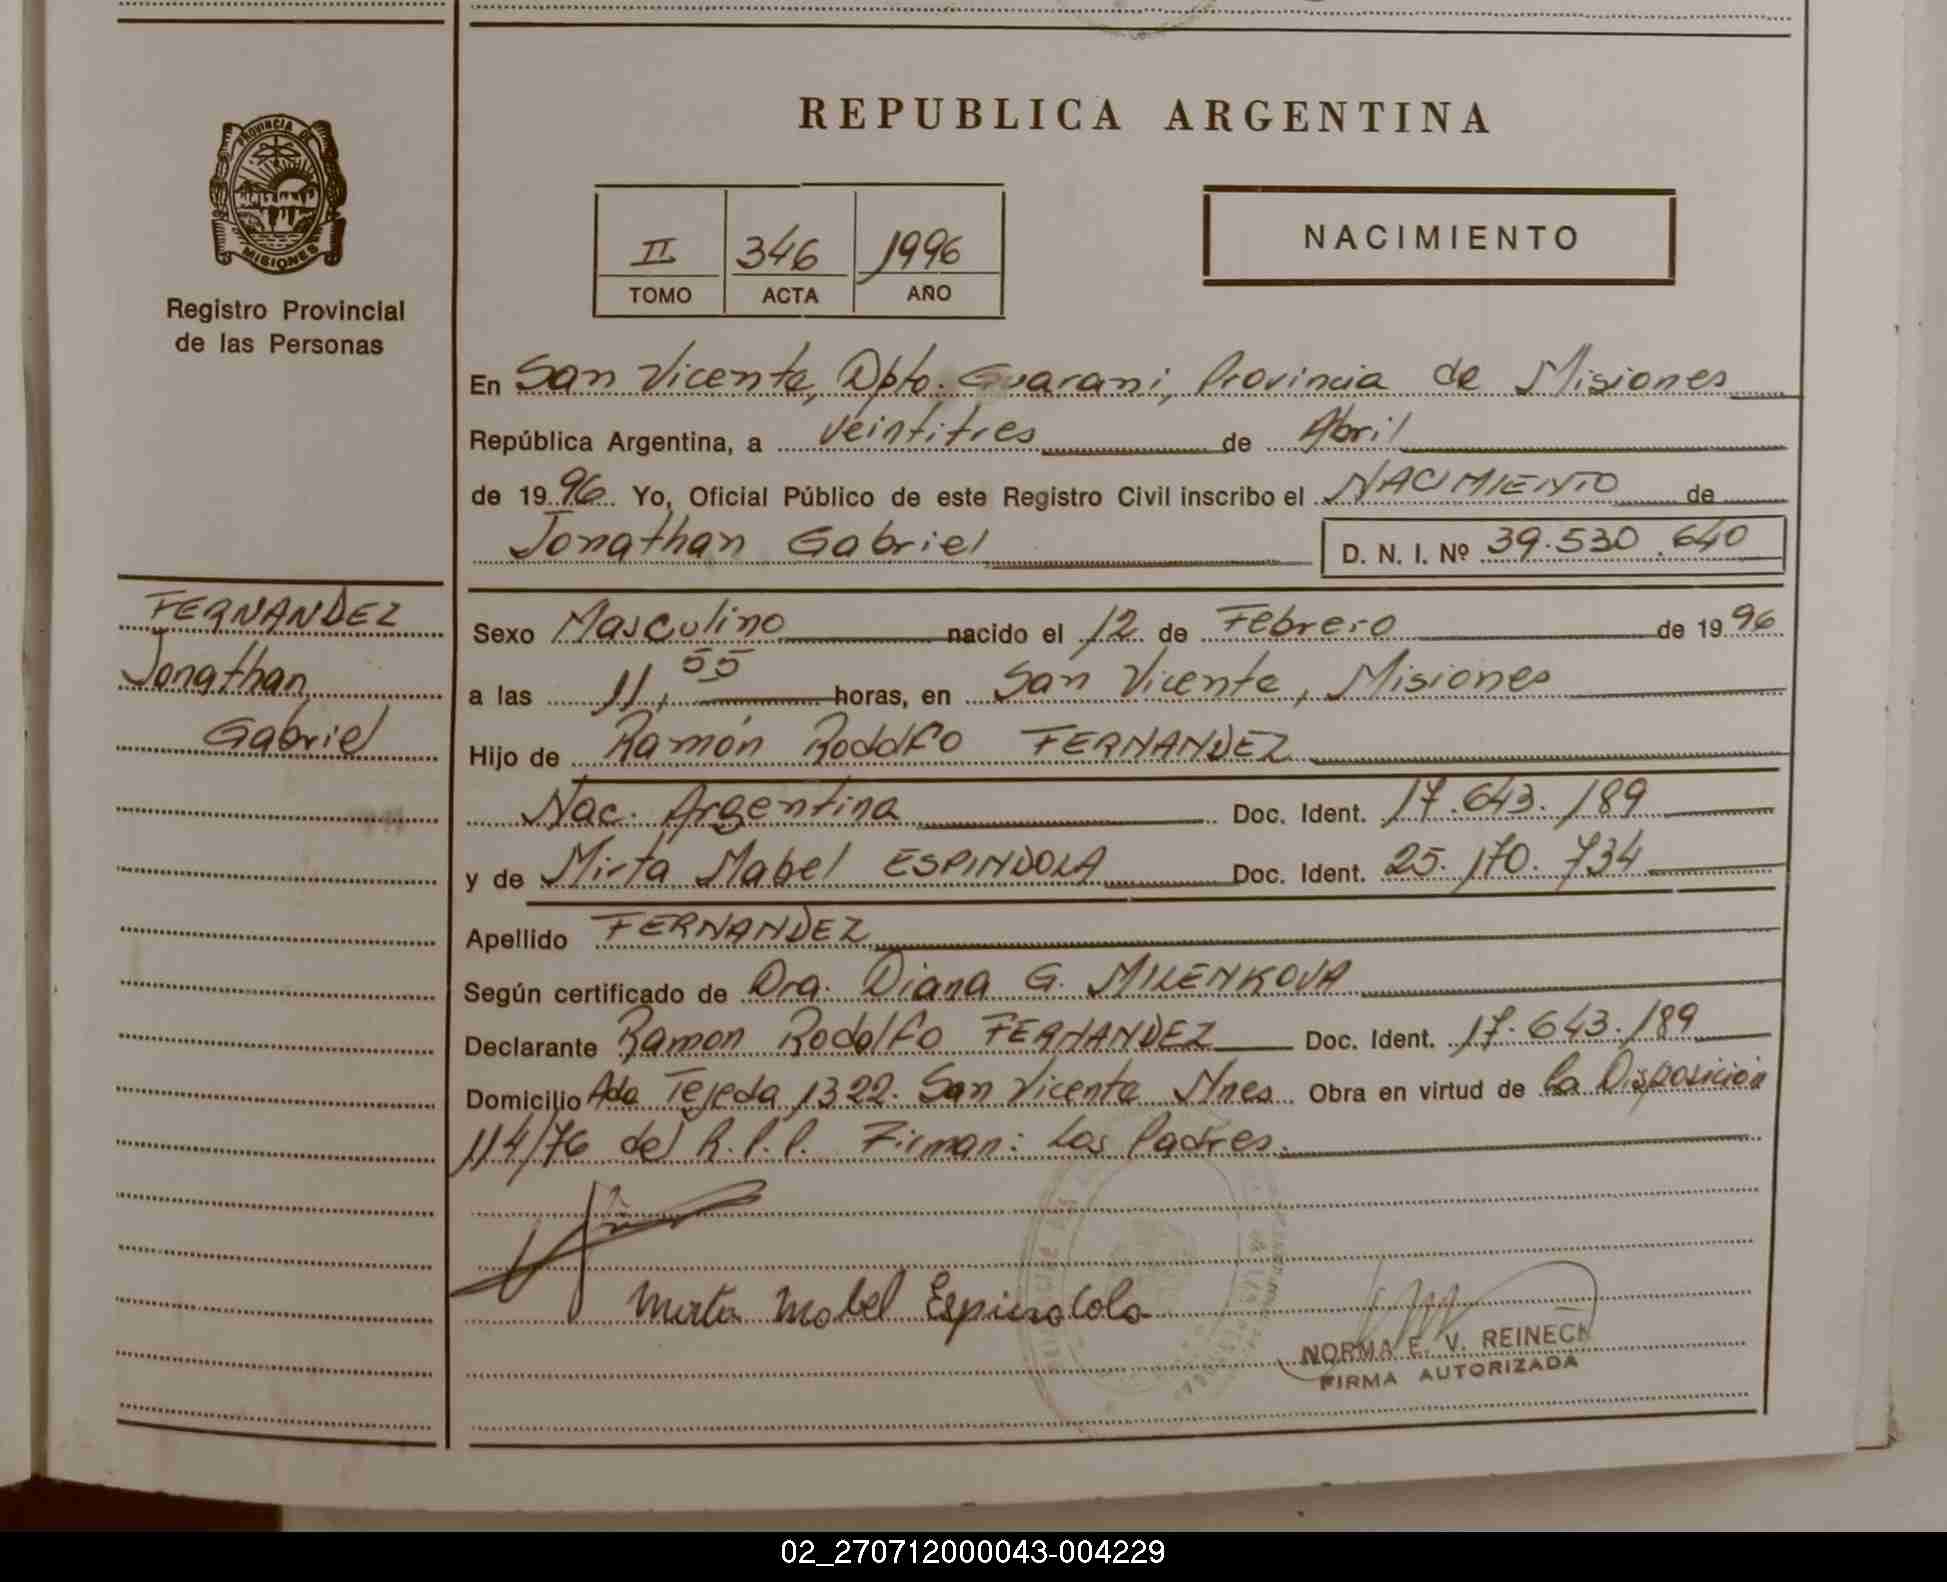 REPUBLICA ARGENTINA
PROVINCIA DE
MISIONES
Registro Provincial
de las Personas
II 346 1996
TOMO ACTA AÑO
NACIMIENTO
En San Vicente, Dpto. Guarani, Provincia de Misiones
República Argentina, a veintitres de Abril
de 1996 Yo, Oficial Público de este Registro Civil inscribo el NACIMIENTO de
Jonathan Gabriel D. N. I. Nº 39.530.640
FERNANDEZ
Jonathan
Gabriel
Sexo Masculino nacido el 12 de Febrero de 1996
a las 11,55 horas, en San Vicente, Misiones
Hijo de Ramón Rodolfo FERNANDEZ
Nac. Argentina Doc. Ident. 17.643.189
y de Mirta Mabel ESPINDOLA Doc. Ident. 25.170.734
Apellido FERNANDEZ
Según certificado de Dra. Diana G. MILENKOVA
Declarante Ramon Rodolfo FERNANDEZ Doc. Ident. 17.643.189
Domicilio Ada Tejeda 1322. San Vicente Mnes Obra en virtud de la Disposición
114/76 del R.P.P. Firman: Los Padres.
Mirta Mabel Espindola
NORMA E. V. REINECK
FIRMA AUTORIZADA
02_270712000043-004229